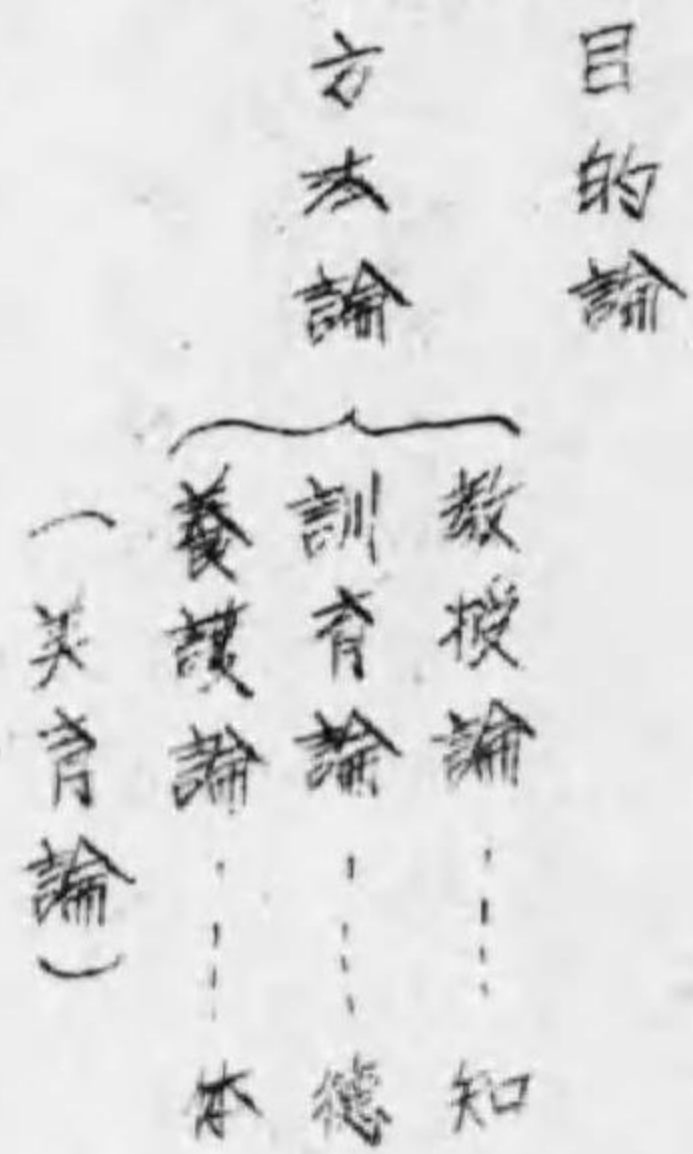 目的論
方法論
教授論……知
訓育論……徳
養護論……体
（美育論）